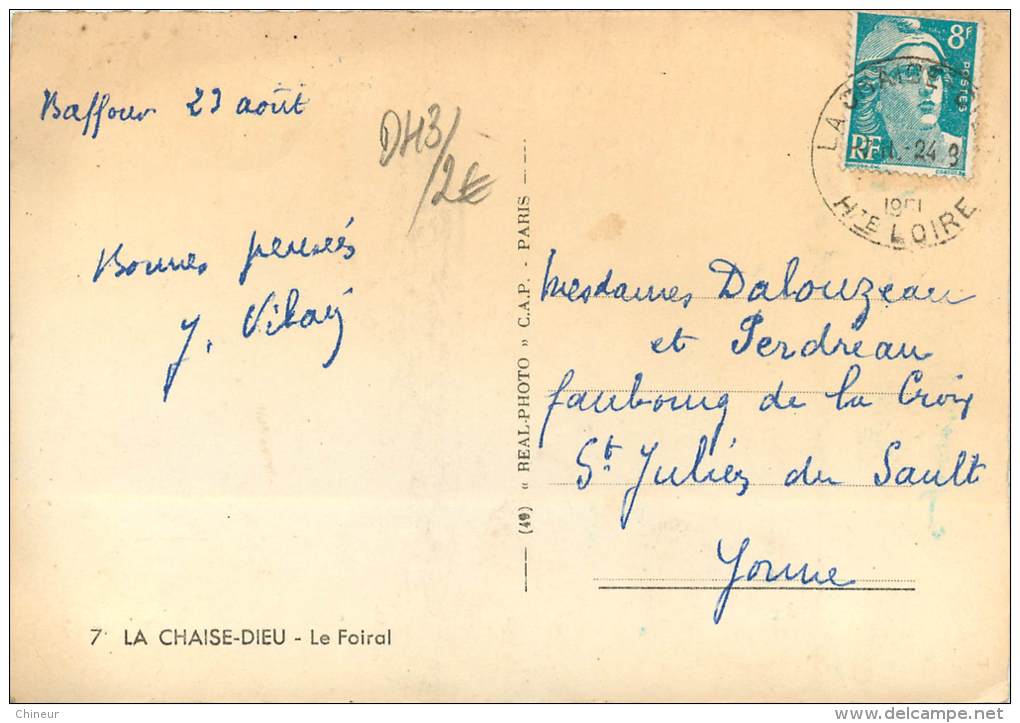 8F
POSTES
RF
LA CHAISE D
24 8
1951
HTE LOIRE
23 août
DH3/
/2€
Bonnes pensées
Mesdames Dalouzeau
et Perdreau
faubourg de la Croix
St. Julien du Sault
Yonne
(49) « REAL-PHOTO » C.A.P. - PARIS
7 LA CHAISE-DIEU - Le Foiral
Chineur
www.delcampe.net